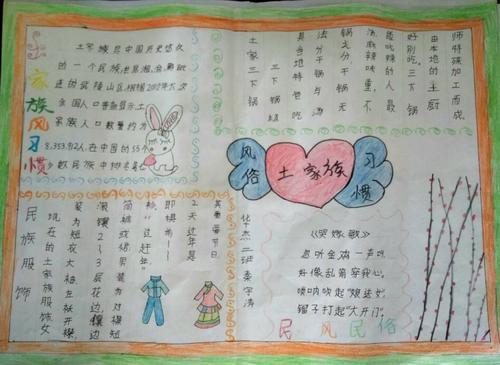 土家族风习惯
土家族是中国历史悠久
的一个民族,世居湘、鄂、黔毗
连的武陵山区,根据2010年六次
全国人口普查显示,土
家族人口数量约为
8,353,912人,在中国的55个
少数民族中排名
土家三下锅
三下锅
具当地特色吃
法分干锅与汤
锅之分干锅无
汤,麻辣味重,不
能吃辣的人最
好别吃,三下锅
由本地的土厨
师特殊加工而成
风俗
土家族
习惯
民族服饰
现在的土家族服饰女
装为短衣大袖,左衽开襟,
滚镶2~3层花边,镶边
筒裤或裙,男装为对襟短
衫
其重要节日
2天过年是
即提前一
“过赶年”
化杰二班秦宇涛
《哭嫁歌》
忽听金鸡一声叫,
好像乱箭穿我心,
唢呐吹起“娘送女”,
锣子打起“大开门”。
民风民俗